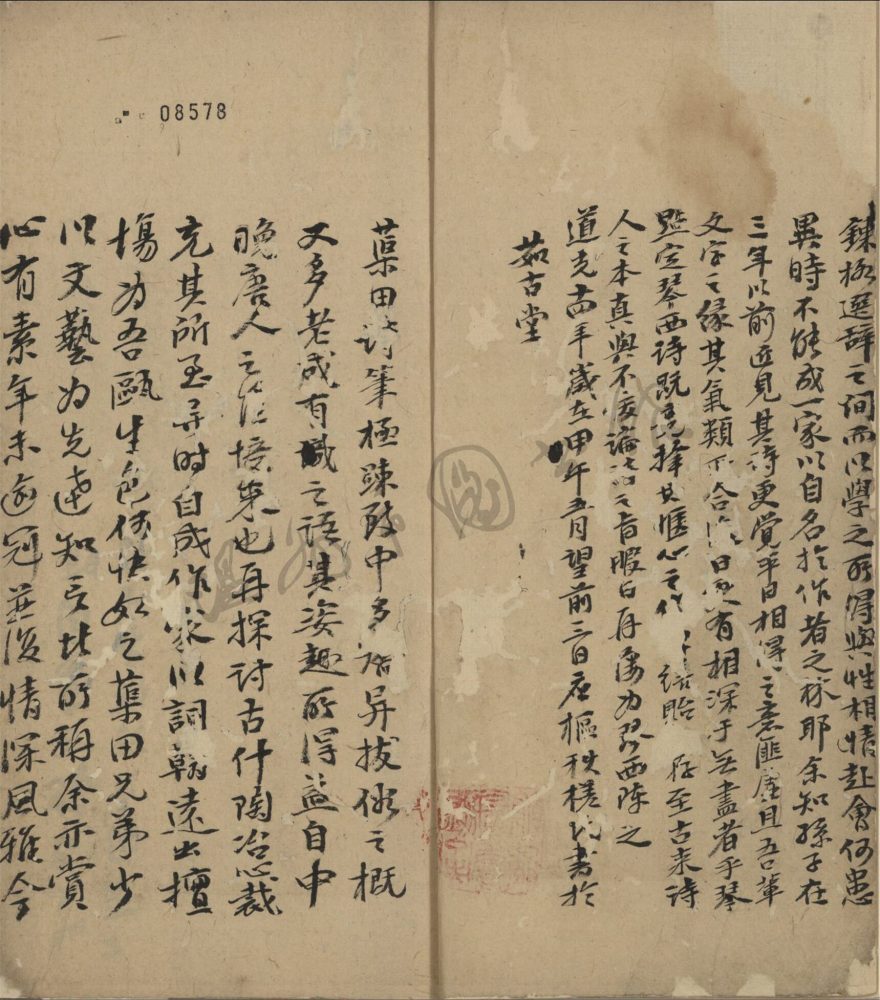 鍊格選辭之間而以學之所得與性相情赴會何患
異時不能成一家以自名於作者之林耶余知孫子在
三年以前近見其詩更覺平日相得之意匪虛且吾輩
文字之緣其氣類所合 日更有相深于無盡者乎琴
點定琴西詩既竟擇其愜心之作 貽 存至古来詩
人之本真與不 論詩之旨暇日再當為琴西陳之
道光十四年歲在甲午五月望前三日 書於
茹古堂
蕖田詩筆極踈散中多 異拔俗之概
又多老成有識之語其姿趣所得益自中
晚唐人之 境来也再探討古什陶冶心裁
充其所至异时自成作家以詞翰遠出壇
場为吾甌生色何快如之蕖田兄弟少
以文藝为先達知言 所稱余亦賞
心有素年未逾冠並復情深風雅今
08578